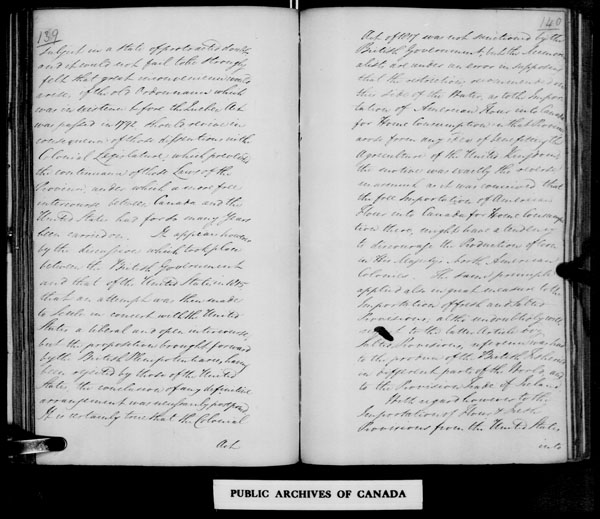 139
Subject in a state of protracted doubt
and it could not fail to be strongly
felt that great inconvenience would
arise if the old Ordonnance which
was in existence before the Quebec Act
was passed in 1792 should revive in
consequence of those dissentions in the
Colonial Legislature, which prevented
the continuance of those Laws of the
Province, under which a more free
intercourse between Canada and the
United States had for so many Years
been carried on. It appears however
by the discussions which took place
between the British Government
and that of the United States in
that an attempt was then made
to settle in concert with the United
States a liberal and open intercourse,
but the proposition brought forward
by the British Plenipotentiaries having
been rejected by those of the United
States the conclusion of any definitive
arrangement was necessarily postponed
It is certainly true that the Colonial
Act
140
Act of was not sanctioned by the
British Government, but the Memori
alists are under an error in supposing
that the restrictions recommended on
this side of the Water, as to the Impor
tation of American Flour into Canada
for Home Consumption in that Province
arose from any idea of benefiting the
Agriculture of the United Kingdom
the motive was exactly the reverse
inasmuch as it was conceived that
the free Importation of American
Flour into Canada for Home Consump
tion there, might have a tendency
to discourage the Production of Corn
in His Majesty's North American
Colonies. The same principle
applied also in great measure to the
Importation of fresh and salted
Provisions, altho' undoubtedly with
respect to the latter Article viz.
Salted Provisions, reference was had
to the provision of the British Fisheries
in different parts of the World and
to the Provision Trade of Ireland
With regard however to the
Importation of Flour & fresh
Provisions from the United States
into
PUBLIC ARCHIVES OF CANADA